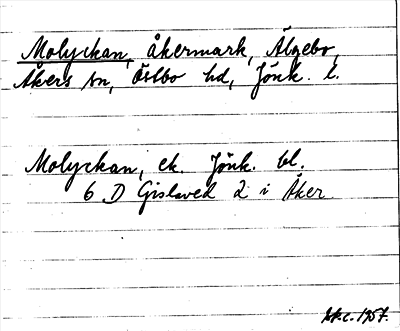 Molyckan, åkermark, Älgebo,
Åkers sn, Östbo hd, Jönk. l.
Molyckan, ek. Jönk. bl.
6 D Gislaved 2 i Åker
1957.